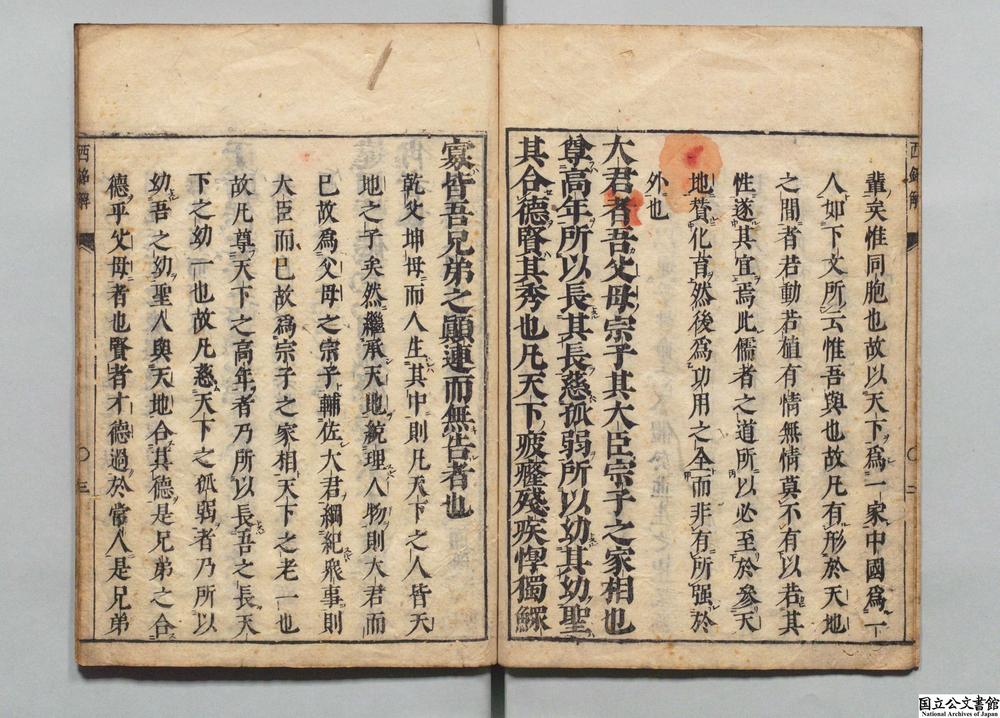 輩矣惟同胞也故以天下爲一家中國爲一
人如下文所云惟吾與也故凡有形於天地
之間者若動若植有情無情莫不有以若其
性遂其宜焉此儒者之道所以必至於參天
地贊化育然後爲功用之全而非有所强於
外也
大君者吾父母宗子其大臣宗子之家相也
尊高年所以長其長慈孤弱所以幼其幼聖
其合德賢其秀也凡天下疲癃殘疾惸獨鰥
寡皆吾兄弟之顚連而無告者也
乾父坤母而人生其中則凡天下之人皆天
地之子矣然繼承天地統理人物則大君而
已故爲父母之宗子輔佐大君綱紀衆事則
大臣而已故爲宗子之家相天下之老一也
故凡尊天下之高年者乃所以長吾之長天
下之幼一也故凡慈天下之孤弱者乃所以
幼吾之幼聖人與天地合其德是兄弟之合
德乎父母者也賢者才德過於常人是兄弟
西銘解
二
西銘解
三
国立公文書館
National Archives of Japan